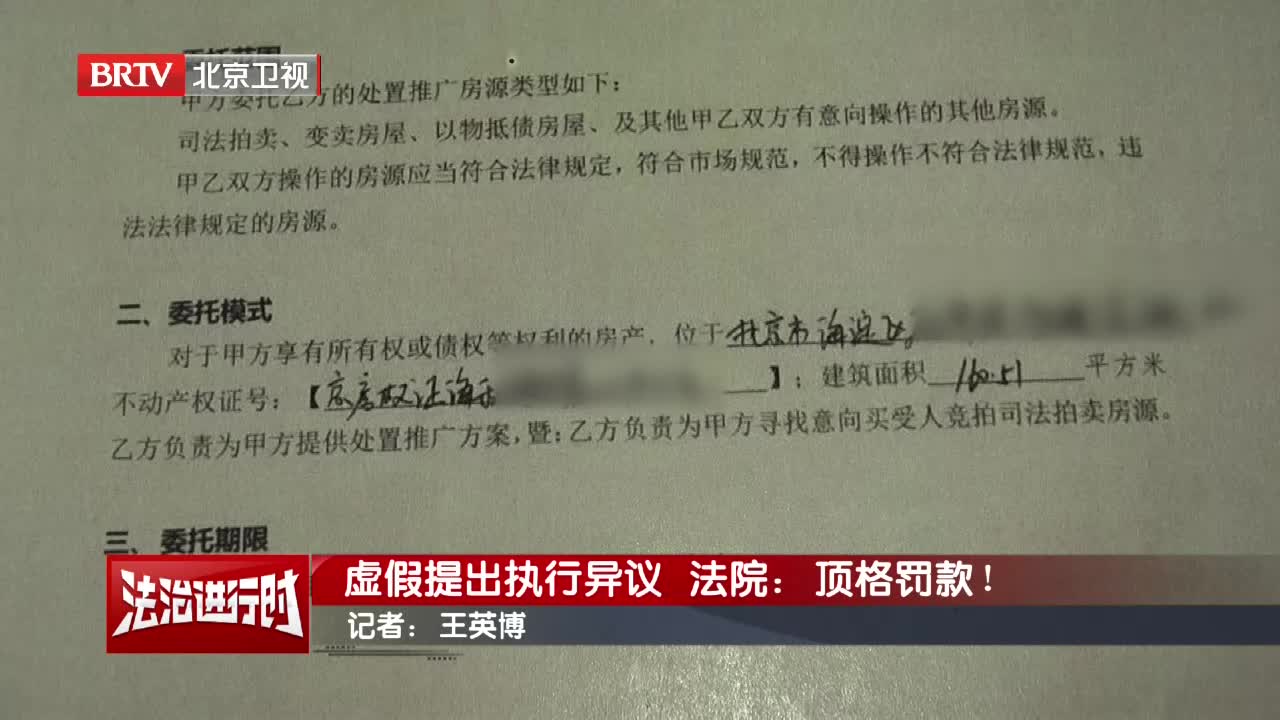 BRTV 北京卫视
甲方委托乙方的处置推广房源类型如下：
司法拍卖、变卖房屋、以物抵债房屋、及其他甲乙双方有意向操作的其他房源。
甲乙双方操作的房源应当符合法律规定，符合市场规范，不得操作不符合法律规范，违
法法律规定的房源。
二、委托模式
对于甲方享有所有权或债权等权利的房产，位于北京市海淀区
不动产权证号：【京房权证海 】；建筑面积 160.51 平方米
乙方负责为甲方提供处置推广方案，暨：乙方负责为甲方寻找意向买受人竞拍司法拍卖房源。
三、委托期限
法治进行时
虚假提出执行异议 法院：顶格罚款！
记者：王英博